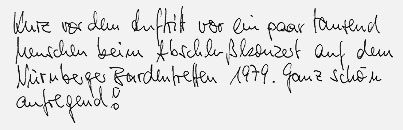 Kurz vor dem Auftritt vor ein paar tausend
Menschen beim Abschlußkonzert auf dem
Nürnberger Bardentreffen 1979. Ganz schön
aufregend!